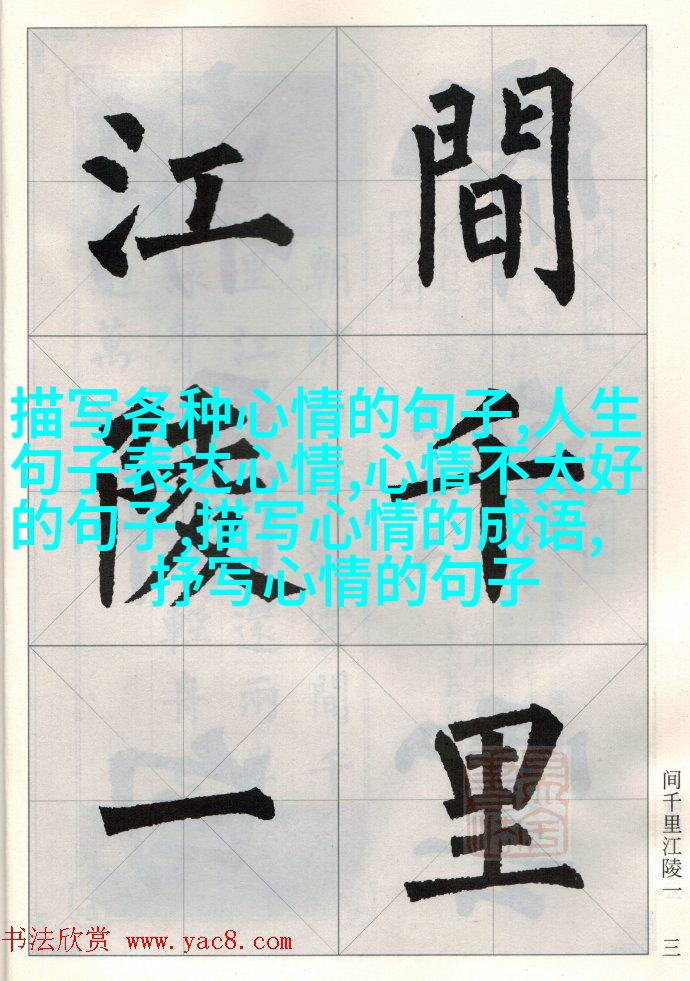 間千里
江陵一
描写各种心情的句子,人生
句子表达心情,心情不太好
的句子,描写心情的成语,
抒写心情的句子
间千里江陵一
三
书法欣赏 www.yac8.com